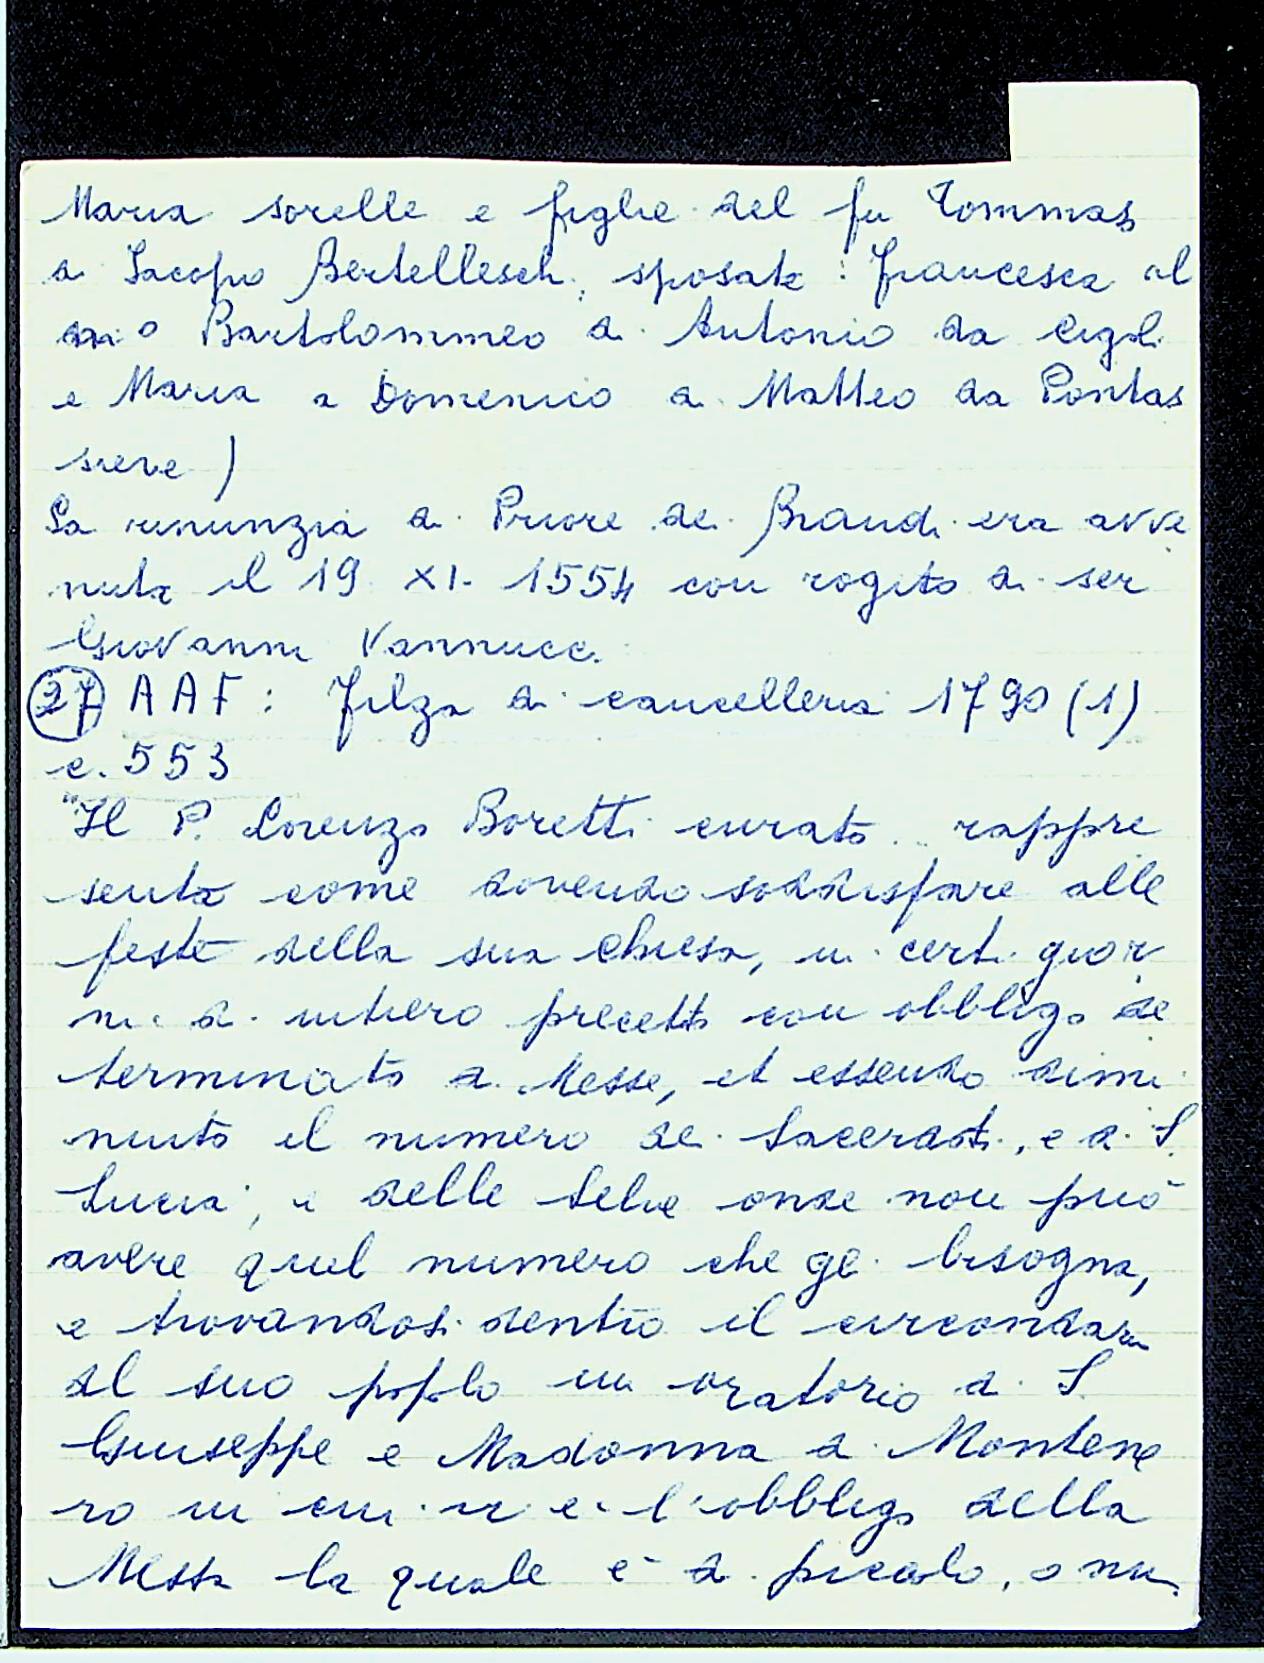 Maria sorelle e figlie del fu Tommaso
di Iacopo Bertelleschi, sposate: Francesca al
Bartolommeo di Antonio da Cigoli
e Maria a Domenico di Matteo da Pontas
sieve)
La rinunzia di Priore dei Brandi era avve
nuta il 19 XI. 1554 con rogito di ser
Giovanni Vannucci.
27 AAF: Filza di cancelleria 1790 (1)
c. 553
"Il P. Lorenzo Boretti curato.. rappre
senta come dovendo soddisfare alle
feste della sua Chiesa, in certi gior
ni di intiero precetto con obbligo de
terminato di Messe, et essendo dimi
nuito il numero dei Sacerdoti, e di S.
Lucia, e delle Selve onde non può
avere quel numero che gli bisogna,
e trovandosi dentro il circondario
del suo popolo un oratorio di S.
Giuseppe e Madonna di Montene
ro in cui vi è l'obbligo della
Messa la quale è di piccolo, o niu